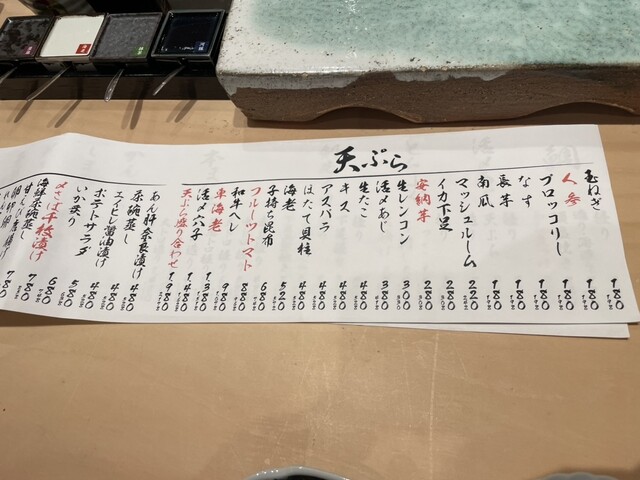 天ぷら
玉ねぎ 180
人参 180
ブロッコリー 180
なす 180
長芋 180
南瓜 180
マッシュルーム 220
イカ下足 220
安納芋 280
生レンコン 300
活〆あじ 380
生たこ 480
キス 480
アスパラ 480
ほたて貝柱 480
海老 520
子持ち昆布 680
フルーツトマト 880
和牛ヘレ 980
車海老 1,380
活〆穴子 1,480
天ぷら盛り合わせ 1,980
あん肝奈良漬け 480
茶碗蒸し 480
エイヒレ醤油漬け 480
ポテトサラダ 580
〆さば千枚漬け 780
海鮮茶碗蒸し 780